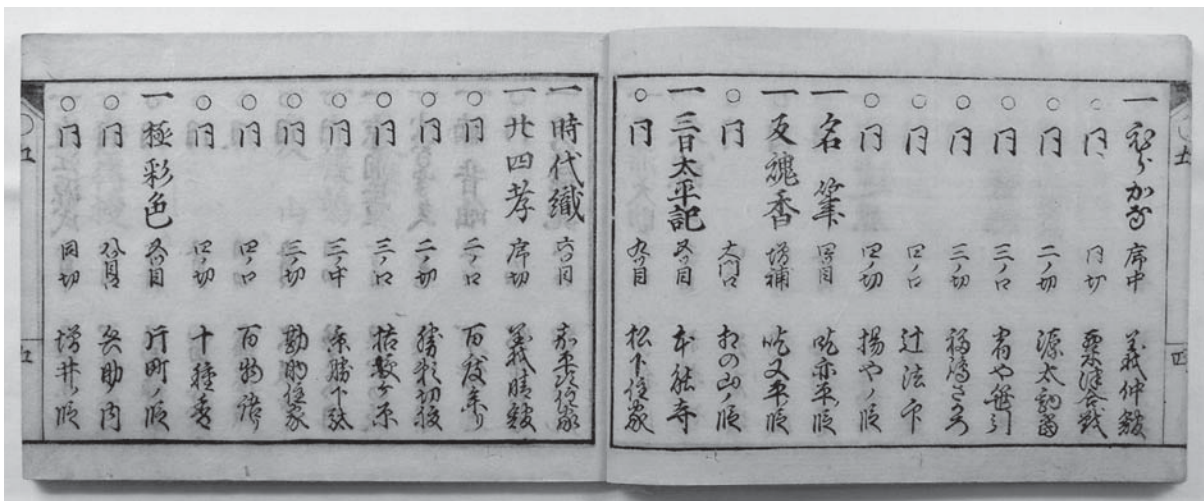 一 ひらかな 序中 義仲館
○ 同 同切 粟津合戦
○ 同 二ノ切 源太勘當
○ 同 三ノ口 笹引
○ 同 三ノ切 福嶋さかろ
○ 同 四ノ口 辻法印
○ 同 四ノ切 揚やノ段
一 名筆 四ツ目 吃亦平ノ段
一 反魂香 増補 吃又平ノ段
○ 同 大門口 相の山ノ段
一 三日太平記 五ツ目 本能寺
○ 同 九ツ目 松下住家
四
一 時代織 六ツ目 嘉平次住家
一 廿四孝 序切 義晴館
○ 同 二ノ口 百度参り
○ 同 二ノ切 勝頼切腹
○ 同 三ノ口 桔梗ヶ原
○ 同 三ノ中 景勝下駄
○ 同 三ノ切 勘助住家
○ 同 四ノ口 百物語り
○ 同 四ノ切 十種香
一 極彩色 五ツ目 片町ノ段
○ 同 八ツ目 兵助内
○ 同 同切 増井ノ段